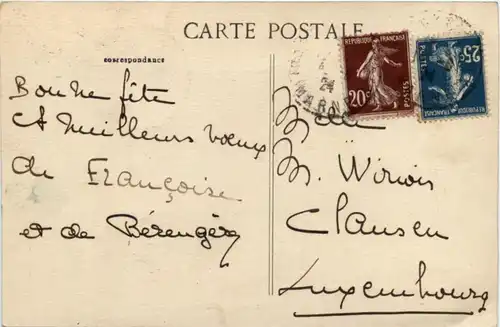 CARTE POSTALE
correspondance
Bonne fête
et meilleurs voeux
de Françoise
et de Bérengère
RÉPUBLIQUE FRANÇAISE
20c
POSTES
RÉPUBLIQUE FRANÇAISE
25c
POSTES
24
Melle
M. Wirion
Clausen
Luxembourg